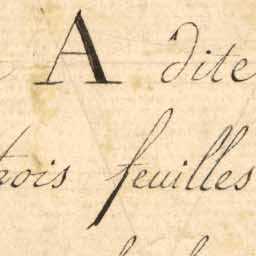 A dite
trois feuilles